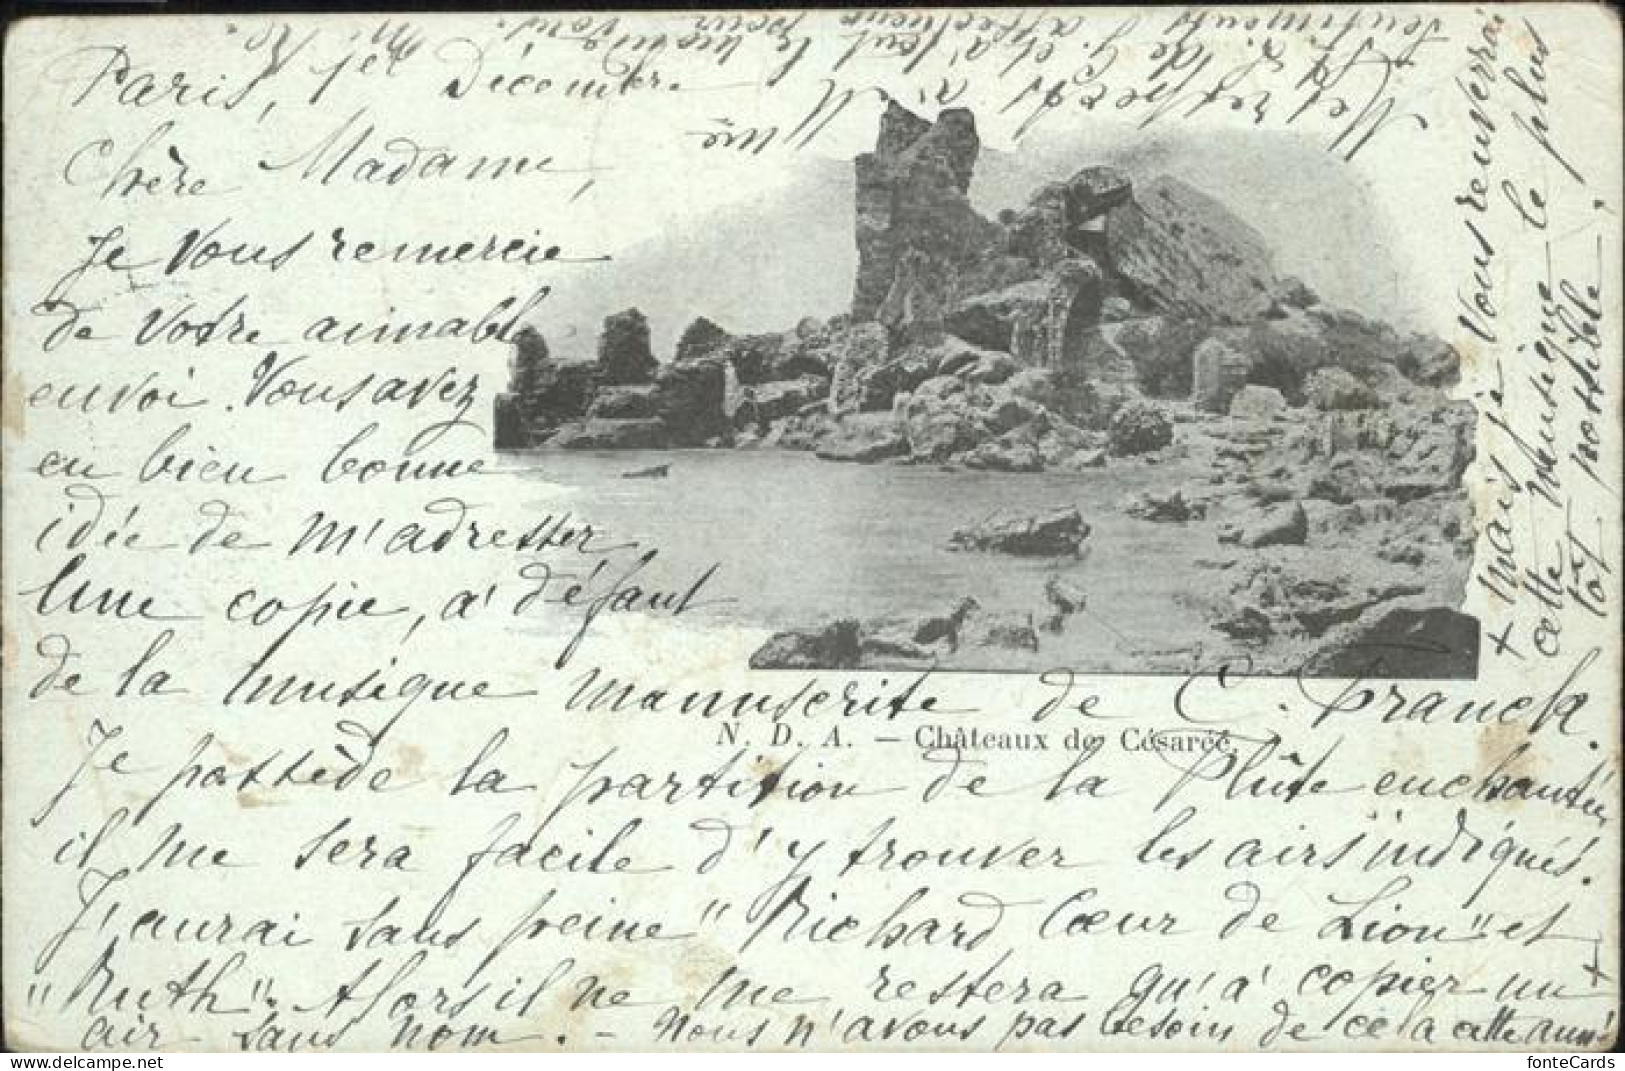 Paris, 1er Décembre.
Chère Madame,
Je vous remercie
de votre aimable
envoi. Vous avez
eu bien bonne
idée de m'adresser
une copie, à défaut
de la musique manuscrite de C. Franck.
N. D. A. — Châteaux de Césarée.
Je possède la partition de la Flûte enchantée
il me sera facile d'y trouver les airs indiqués.
J'aurai sans peine "Richard Cœur de Lion" et
"Ruth". Alors il ne me restera qu'à copier un
air sans nom. - Nous n'avons pas besoin de cela cette année
+ mais je vous renverrai
cette musique le plus
tôt possible.
Mes respects à Mme
de G. et à
sentiments affectueux pour vous.
fonteCards